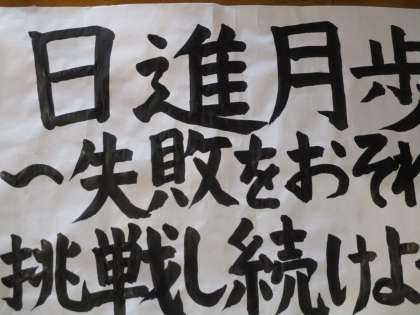 日進月歩
〜失敗をおそれ
挑戦し続けよ